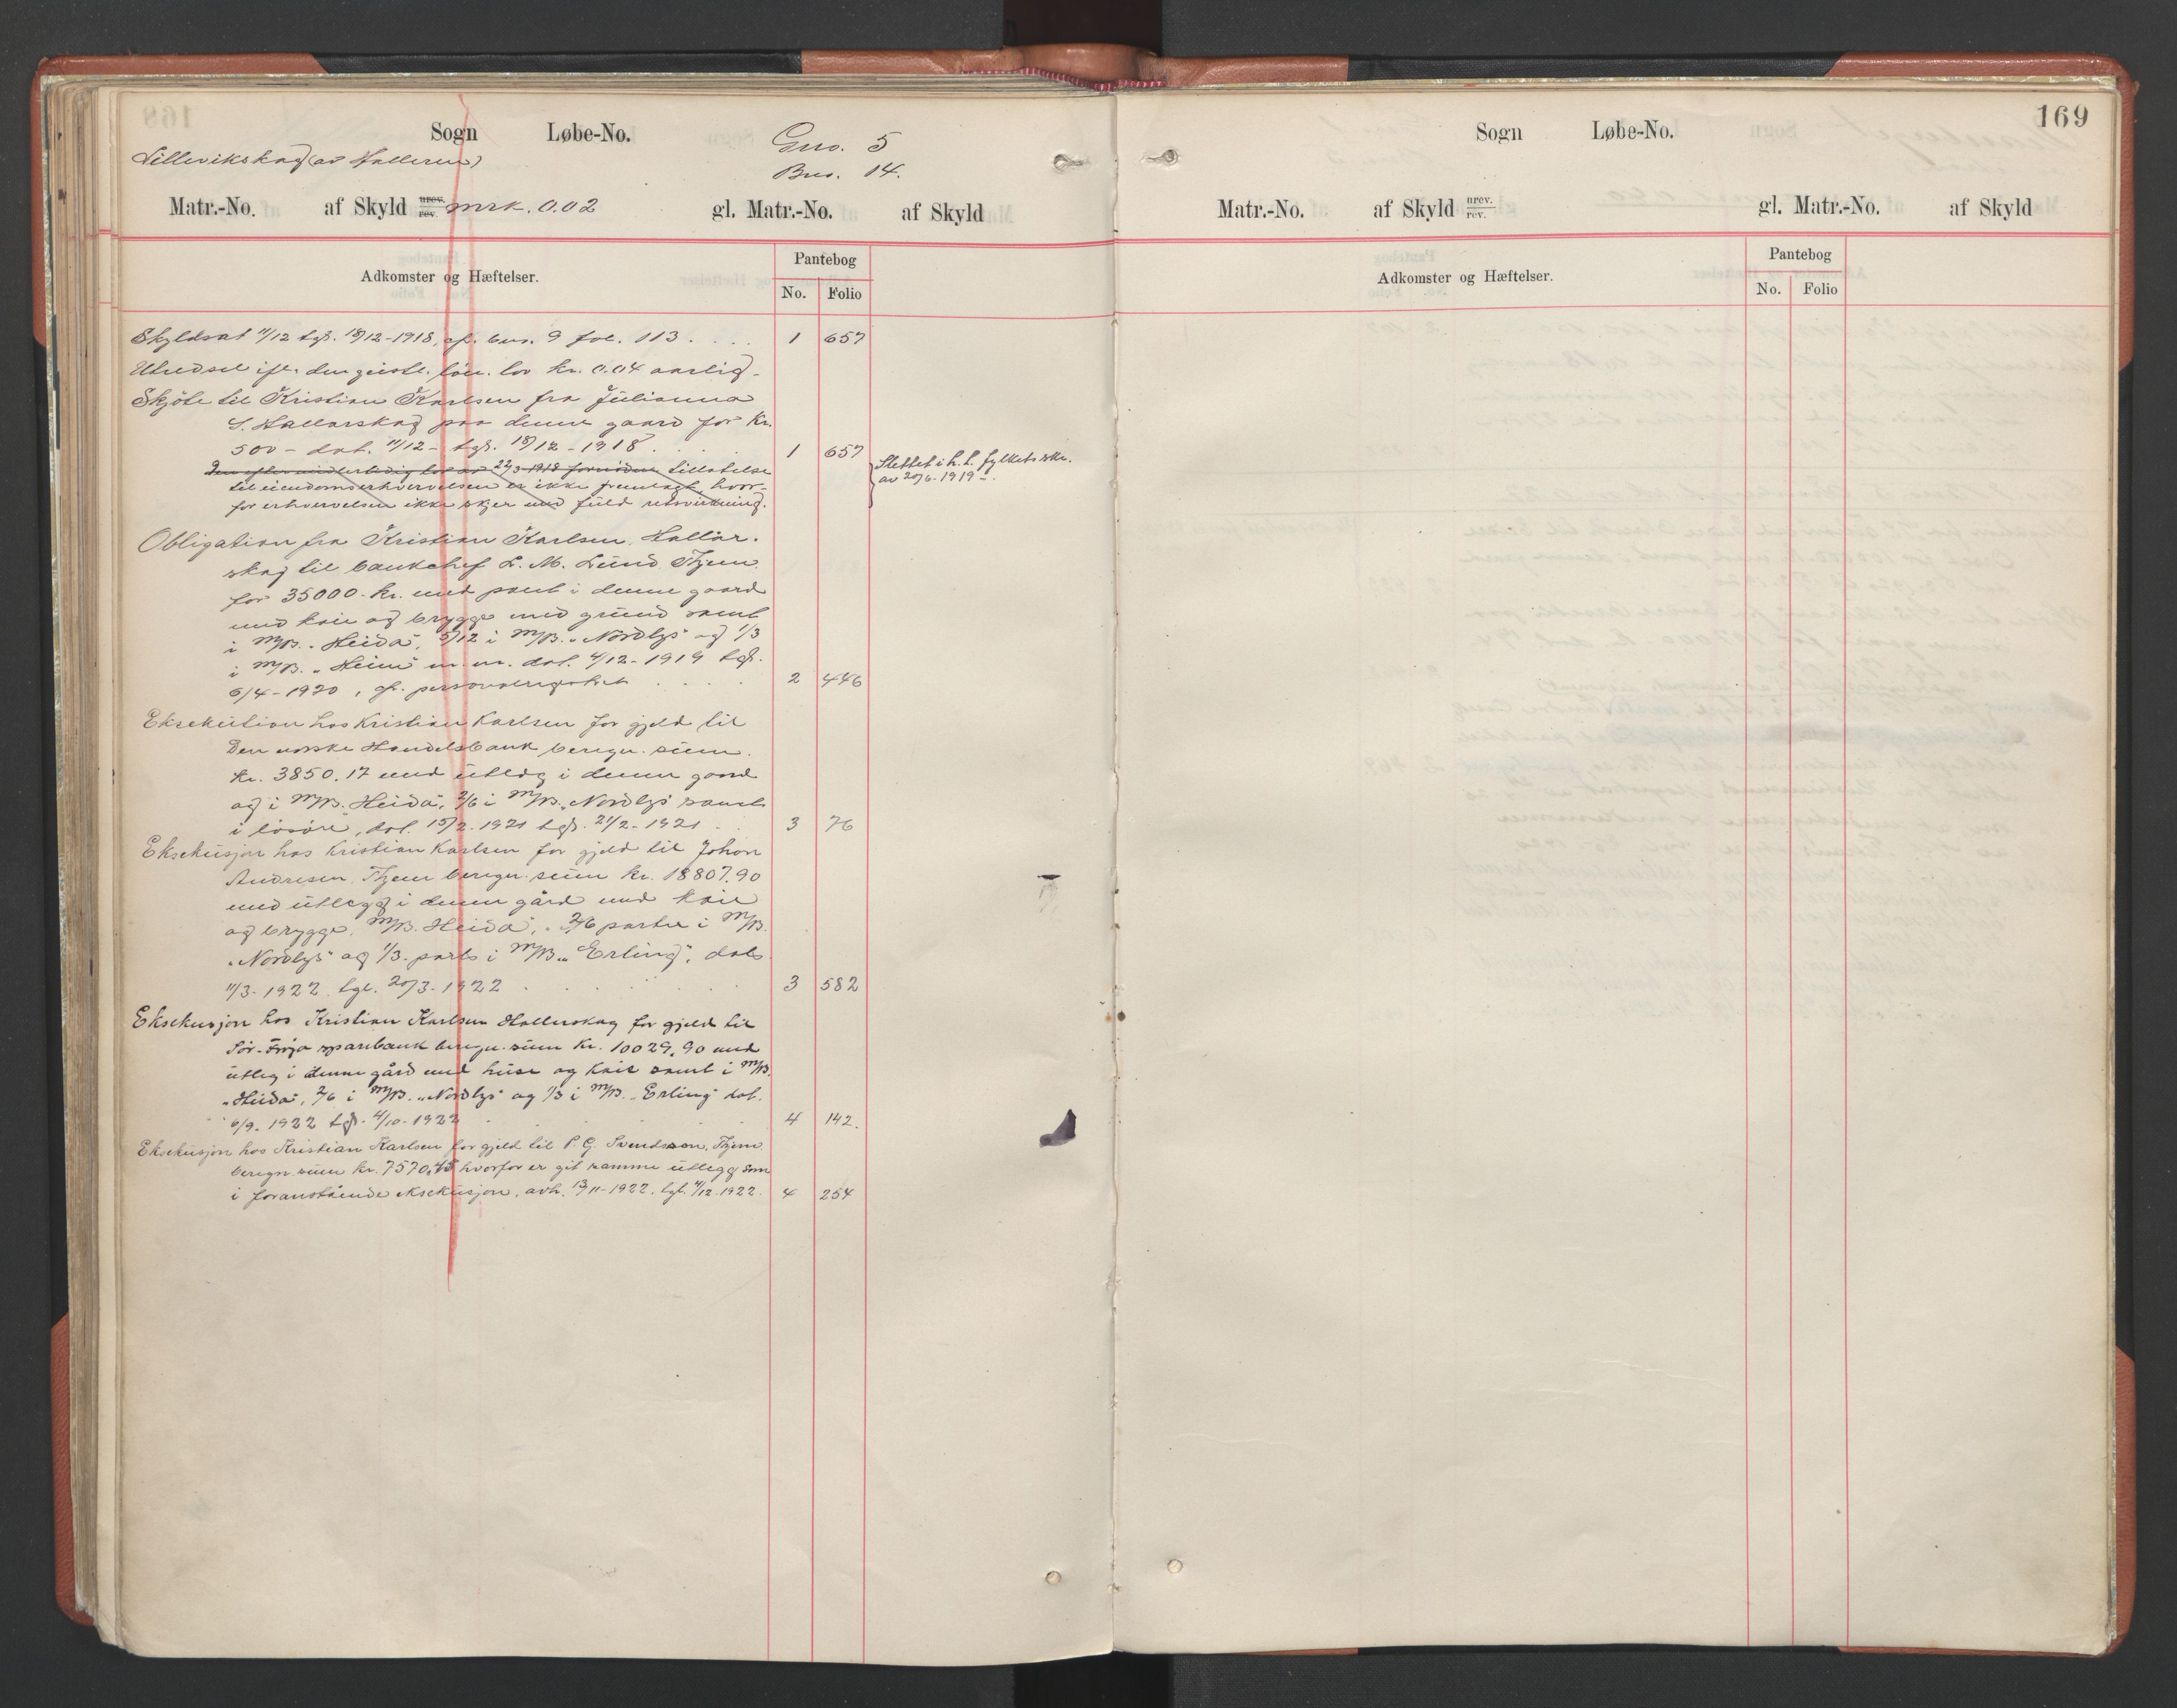 Sogn Løbe-No. Gno. 5
Lillevikskag (av Halleren) Bno. 14.
Matr.-No. af Skyld urev. rev. mrk. 0.02 gl. Matr.-No. af Skyld
Adkomster og Hæftelser. Pantebog
No. Folio
Skyldsat 11/12 tgl. 18/12-1918, cf. bno. 9 fol. 113 . . . . 1 657
Utredsel ifl. den geistl. løn. lov kr. 0.04 aarlig.
Skjöte til Kristian Karlsen fra Julianna
S. Hallarskag paa denne gaard for kr.
500 - dat. 11/12 - tgl. 18/12 - 1918 . . . 1 657
Den efter midlertidig lov av 22/3 1918 fornödne tillatelse
til eiendomserhvervelsen er ikke fremlagt, hvor-
for erhvervelsen ikke skjer med fuld retsvirkning.
Slettet i h. t. fylkets skr.
av 20/6-1919.
Obligation fra Kristian Karlsen, Hallar-
skag til bankchef L. M. Lund Thjem
for 35000 - kr. med pant i denne gaard
med kaie og brygge med grund samt
i M/B. "Heida", 5/12 i M/B. "Nordlys" og 1/3
i M/B. "Heim" m. m. dat. 4/12-1919 tgl.
6/4-1920, cf. personalregistret . . . . 2 446
Eksekution hos Kristian Karlsen for gjeld til
Den norske Handelsbank beregn. sum
kr. 3850.17 med utlæg i denne gaard
og i M/B. Heida", 2/6 i M/B. "Nordlys" samt
i lösöre, dat. 15/2-1921 tgl. 21/2-1921 . . 3 76
Eksekusjon hos Kristian Karlsen for gjeld til Johan
Andresen, Thjem beregn. sum kr. 18807.90
med utlegg i denne gård med kaie
og brygge, M/B. Heida", 2/6 parter i M/B.
"Nordlys" og 1/3-parts i M/B. "Erling", dat.
11/3-1922 tgl. 20/3-1922 . . . . . 3 582
Eksekusjon hos Kristian Karlsen Hallerskag for gjeld til
Sör-Fröja sparebank beregn. sum kr. 10029,90 med
utleg i denne gård med huse og kaie samt i M/B.
"Heida", 2/6 i M/B. "Nordlys" og 1/3 i M/B. "Erling" dat.
6/9-1922 tgl. 4/10-1922 . . . . 4 142.
Eksekusjon hos Kristian Karlsen for gjeld til P. G. Svendsson, Thjem
beregn. sum kr. 7570,45 hvorfor er git samme utlegg som
i foranstående eksekusjon, avh. 13/11-1922, tgl. 4/12-1922. 4 254
169
Sogn Løbe-No.
Matr.-No. af Skyld urev. rev. gl. Matr.-No. af Skyld
Adkomster og Hæftelser. Pantebog
No. Folio